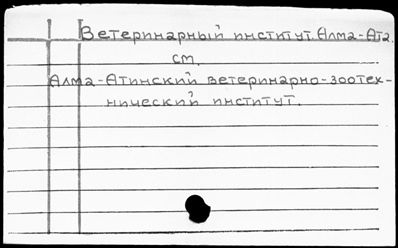 Ветеринарный институт. Алма-Ата.
см.
Алма-Атинский ветеринарно-зоотех-
нический институт.